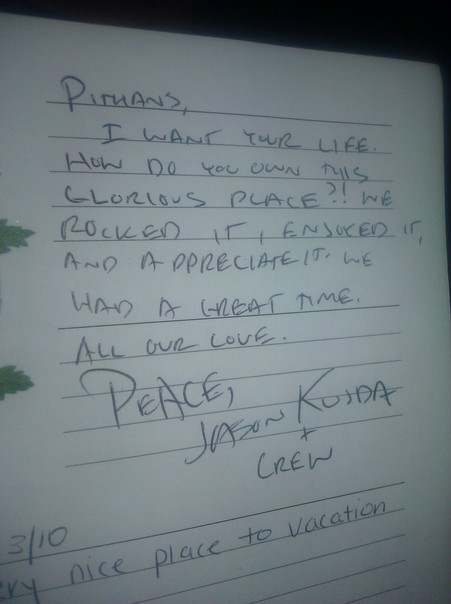 PITMANS,
I WANT YOUR LIFE.
HOW DO YOU OWN THIS
GLORIOUS PLACE?! WE
ROCKED IT, ENJOYED IT,
AND APPRECIATE IT. WE
HAD A GREAT TIME.
ALL OUR LOVE.
PEACE,
JASON
+
CREW
3/10
nice place to vacation